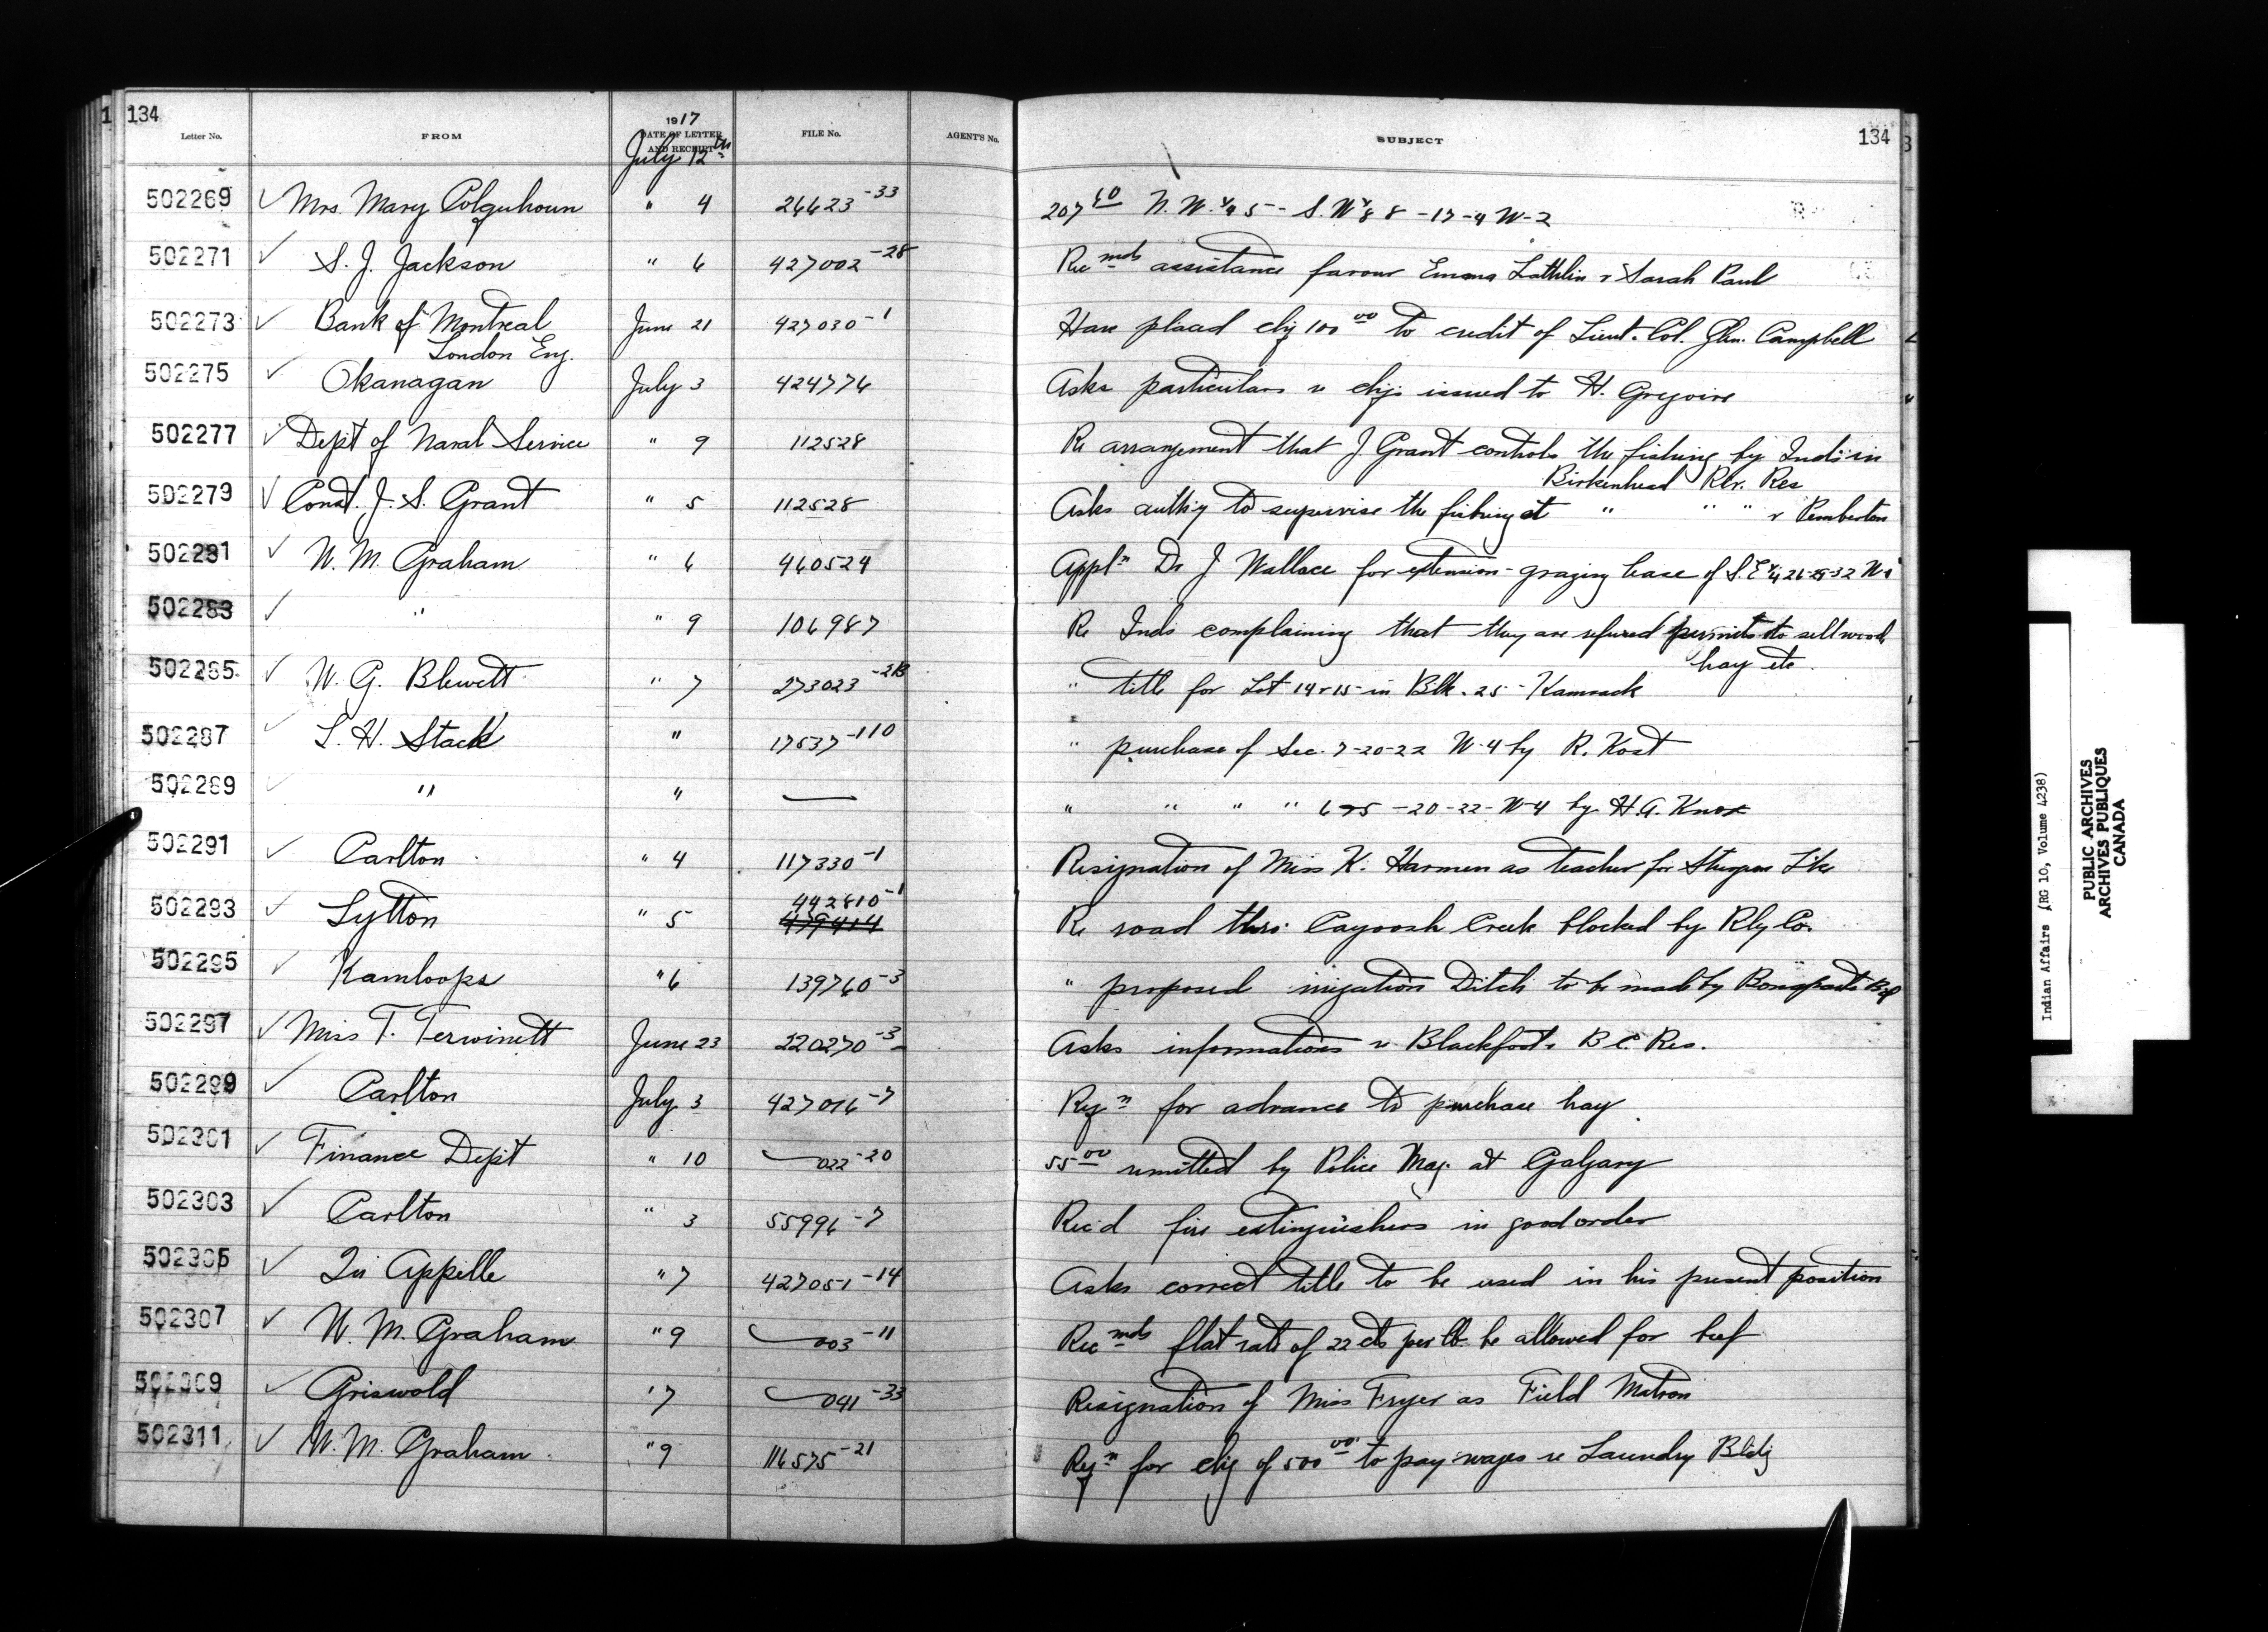 134
Letter No. FROM 1917 DATE OF LETTER AND RECEIPT FILE No. AGENT'S No. SUBJECT 134
July 12th
502269 ✓ Mrs. Mary Colquhoun " 4 26623-33 207 60 N.W. 1/4 5 - S. W 1/2 8 8 - 17 - 4 W - 2
502271 ✓ S. J. Jackson " 6 427002-28 Recmds assistance favour Emma Lathlin & Sarah Paul
502273 ✓ Bank of Montreal June 21 427030-1 Have placed chq 100 00 to credit of Lieut. Col. Glen. Campbell
London Eng.
502275 ✓ Okanagan July 3 424776 Asks particulars re chqs issued to H. Gregoire
502277 ✓ Dept of Naval Service " 9 112528 Re arrangement that J Grant controls the fishing by Inds in
Birkenhead Rlr. Res
502279 ✓ Const. J. S. Grant " 5 112528 Asks auth'y to supervise the fishing at " " " & Pemberton
502281 ✓ W. M. Graham " 6 460524 Appln Dr J Wallace for extension - grazing lease of S.E 1/4 26-25-32 W-1
502283 ✓ " " 9 106987 Re Inds complaining that they are refused permits to sell wood
hay etc.
502285 ✓ W. G. Blewett " 7 273023-213 " title for Lot 14 & 15 in Blk. 25 - Kamsack
502287 ✓ L. H. Stack " 17537-110 " purchase of Sec. 7-20-22 W-4 by R. Kost
502289 ✓ " " — " " " " 6 & 5 - 20-22-W-4 by H. A. Knox
502291 ✓ Carlton " 4 117330-1 Resignation of Miss K. Harmen as teacher for Sturgeon Lke
442810-1
502293 ✓ Lytton " 5 479414 Re road thro. Cayoosh Creek blocked by Rly Co.
502295 ✓ Kamloops " 6 139760-3 " proposed irrigation Ditch to be made by Bonaparte Bd
502297 ✓ Miss T. Terwinett June 23 220270-3 Asks information re Blackfoots B.C. Res.
502299 ✓ Carlton July 3 427016-7 Reqn for advance to purchase hay
502301 ✓ Finance Dept " 10 022-20 55 00 remitted by Police Mag. at Calgary
502303 ✓ Carlton " 3 55996-7 Rec'd fire extinguishers in good order
502305 ✓ Qu Appelle " 7 427051-14 Asks correct title to be used in his present position
502307 ✓ W. M. Graham " 9 003-11 Recmds flat rate of 22 cts per lb be allowed for beef
502309 ✓ Griswold " 7 041-33 Resignation of Miss Fryer as Field Matron
502311 ✓ W. M. Graham " 9 116575-21 Reqn for chq of 500 00 to pay wages re Laundry Bldg
Indian Affairs (RG 10, Volume 4238)
PUBLIC ARCHIVES
ARCHIVES PUBLIQUES
CANADA